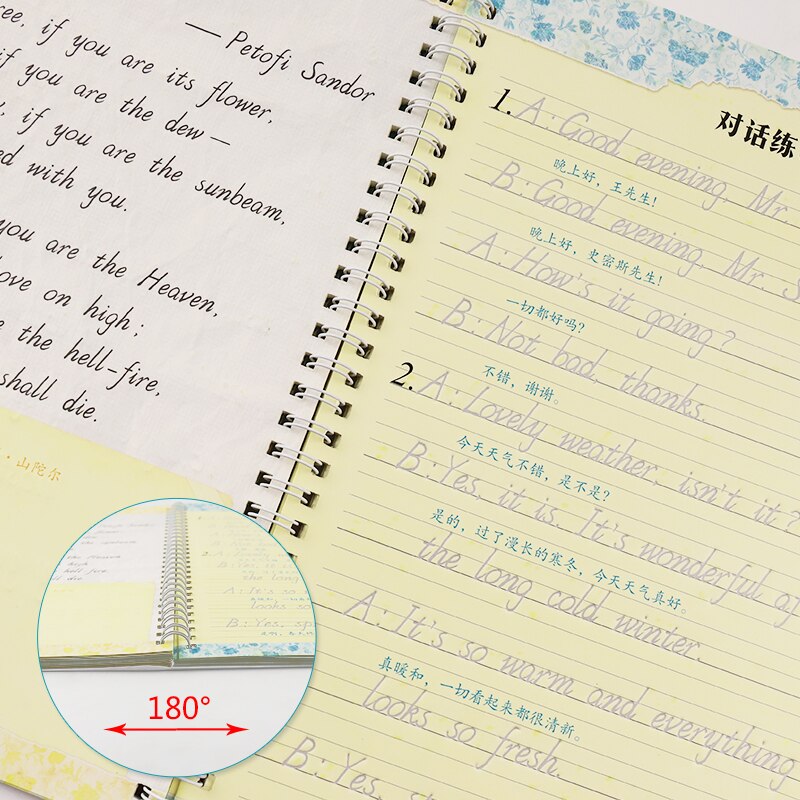 — Petofi Sandor
if you are its flower,
if you are the dew —
if you are the sunbeam,
with you.
you are the Heaven,
on high;
the hell-fire,
shall die.
·山陀尔
对话练
1. A: Good evening, Mr.
晚上好，王先生!
B: Good evening, Mr. S
晚上好，史密斯先生!
A: How's it going?
一切都好吗?
B: Not bad, thanks.
不错，谢谢。
2. A: Lovely weather, isn't it?
今天天气不错，是不是?
B: Yes, it is. It's wonderful
the long cold winter.
是的，过了漫长的寒冬，今天天气真好。
A: It's so warm and everything
looks so fresh.
真暖和，一切看起来都很清新。
B: Yes,
180°